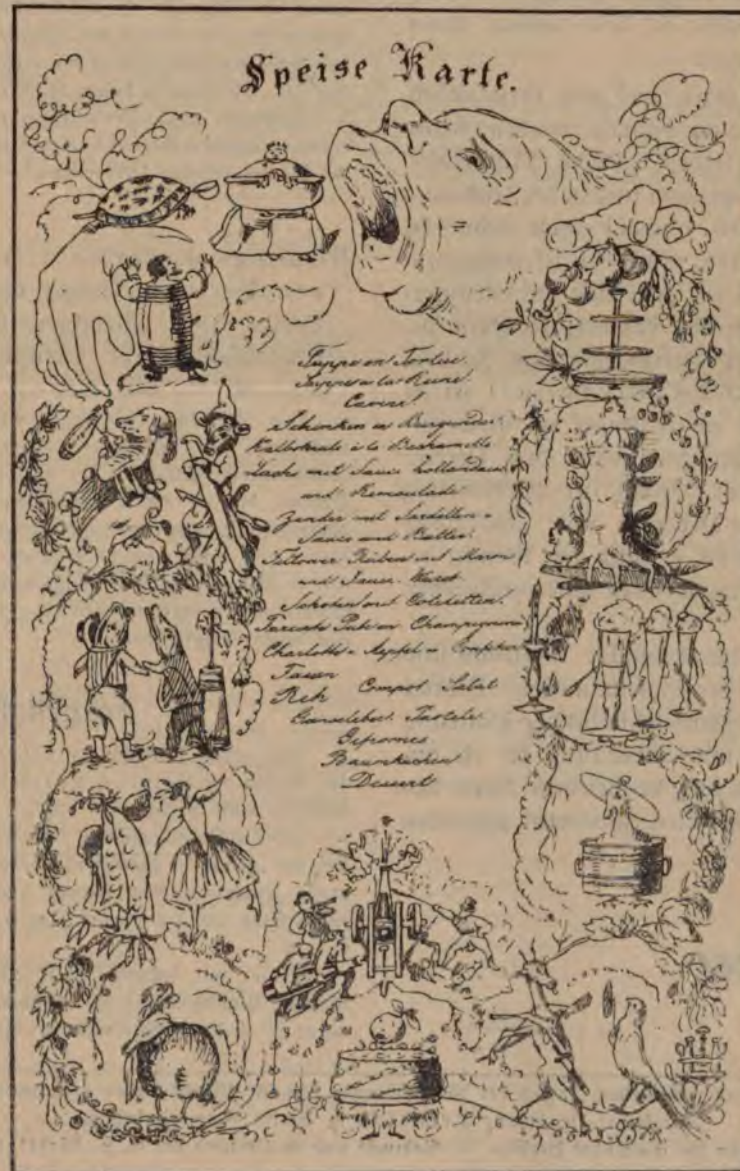 Speise Karte.
Suppe en Tortue
Suppe a la Reine
Caviar
Schinken in Burgunder
à la Bechamelle
Lachs mit Sauce hollandaise
und Remoulade
Zander mit Sardellen=
Sauce und Butter
Teltower Rüben mit Maron
und Sauc. Wurst
Schoten mit Coteletten
Pute en Champignons
Charlotte v. Aepfel u.
Fasan
Reh Compot Salat
Gefrornes
Baumkuchen
Dessert